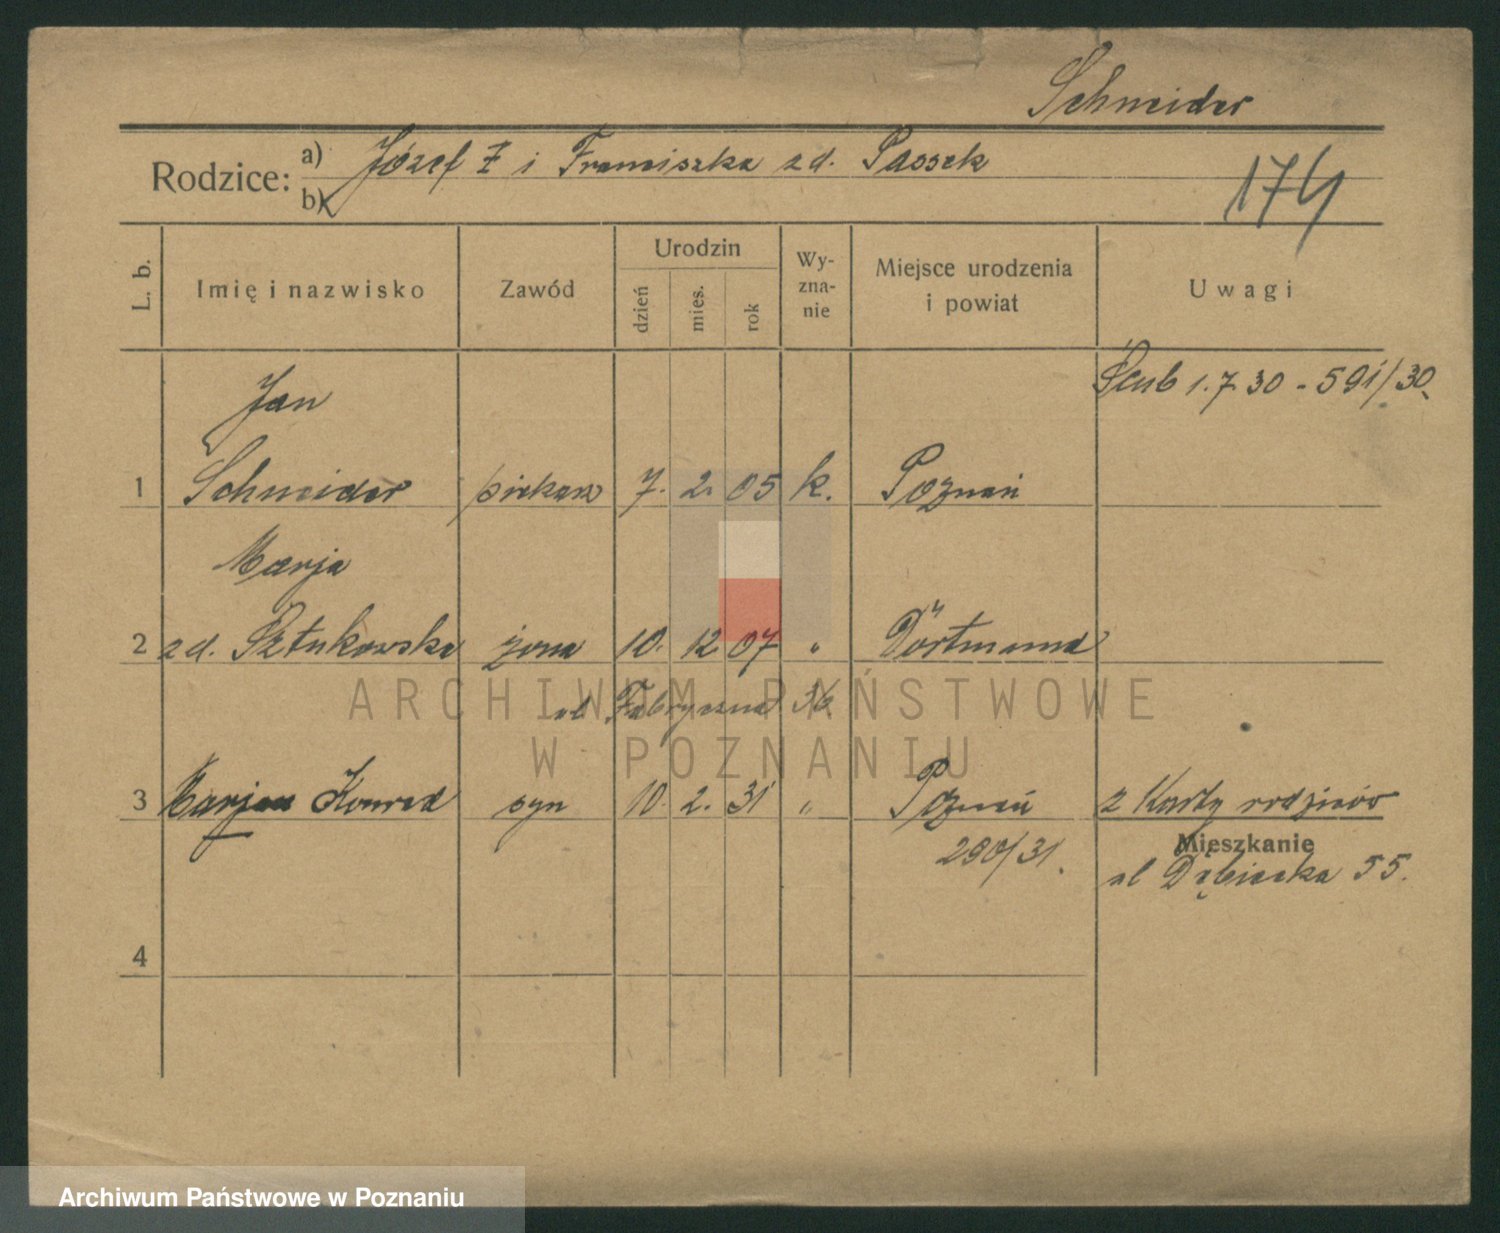 Schneider
Rodzice: a) Józef ‡ i Franciszka zd. Passek
b)
174
L. b.
Imię i nazwisko
Zawód
Urodzin
dzień
mies.
rok
Wy-
zna-
nie
Miejsce urodzenia
i powiat
Uwagi
Ślub 1.7.30 - 591/30.
Jan
1 Schneider piekarz 7. 2. 05 k. Poznań
Marja
2 zd. Sztukowska żona 10. 12. 07 " Dortmund
ul Fabryczna 36
3 Marjan Konrad syn 10. 2. 31 " Poznań z Karty rodziców
290/31.
Mieszkanie
ul Dębiecka 55.
4
ARCHIWUM PAŃSTWOWE
W POZNANIU
Archiwum Państwowe w Poznaniu